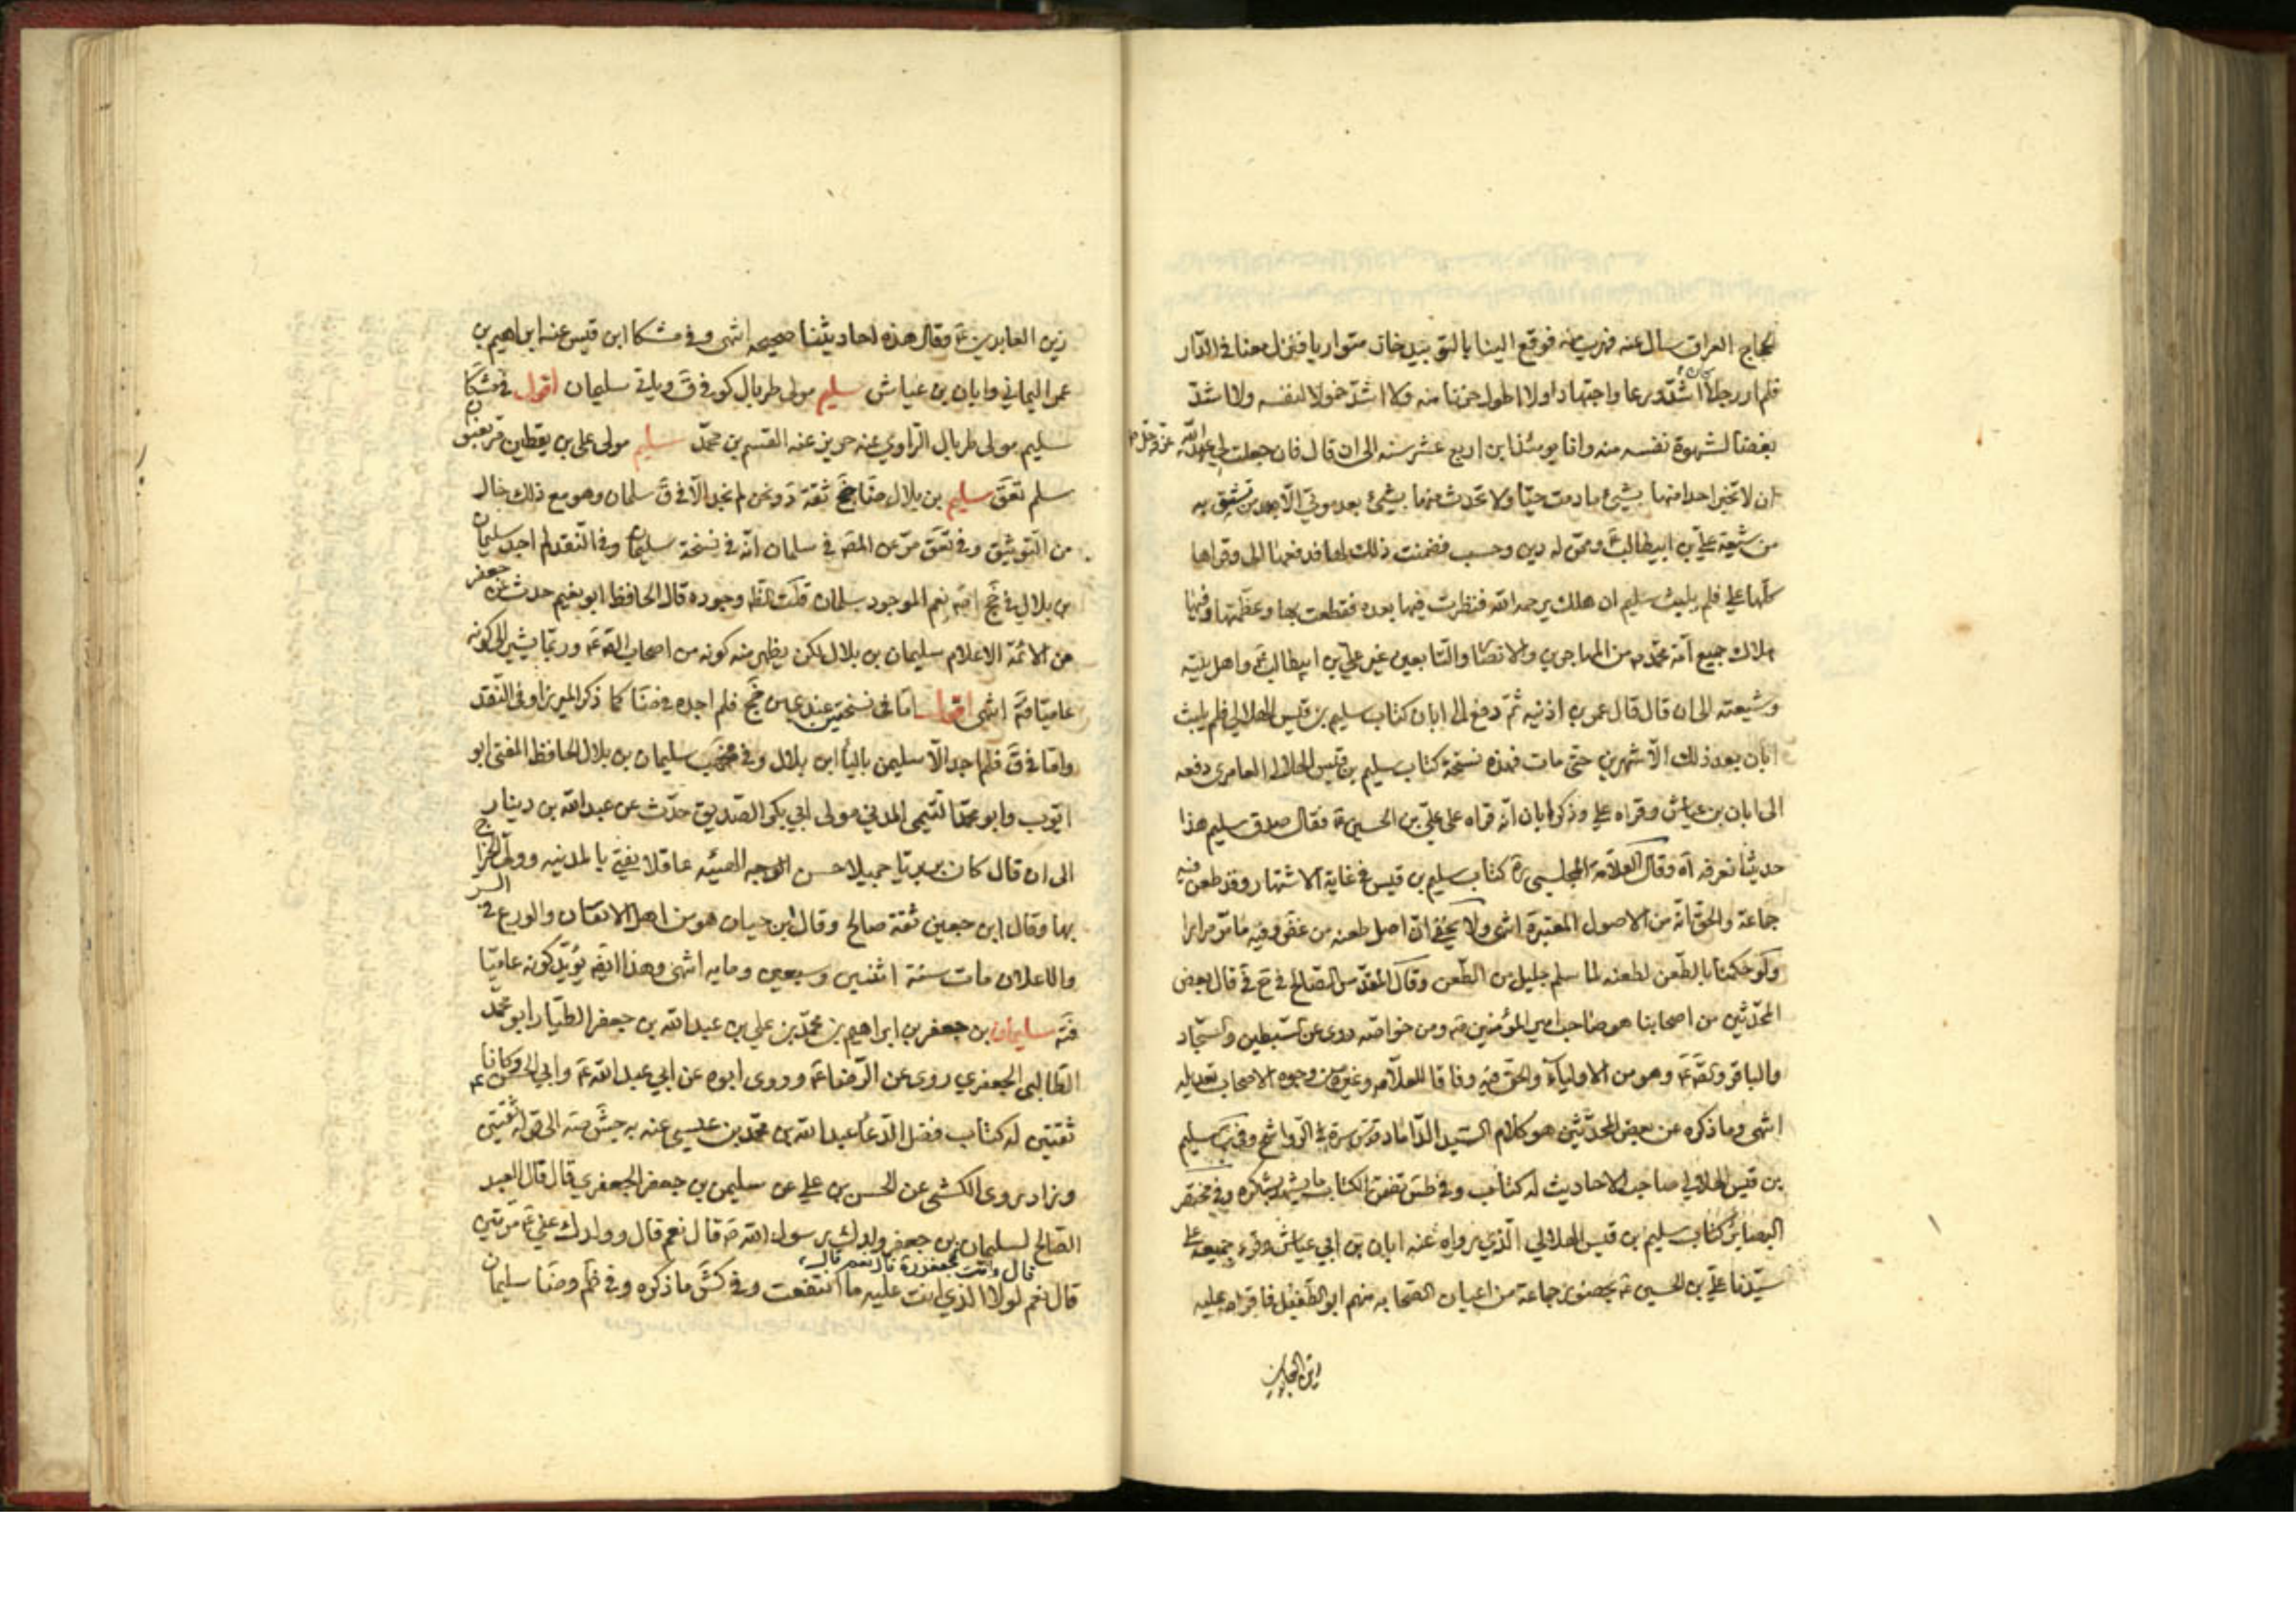 الحجاج العراق سال عنه فهرب منه فوقع الينا بالنوبندجان متواريا فنزل معنا في الدار
فلم ار رجلا كان اشد ورعا واجتهادا ولا اطول حزنا منه ولا اشد خمولا لنفسه ولا اشد
بغضا لشهوة نفسه منه وانا يومئذ ابن اربع عشر سنه الى ان قال فان جعلت لي عهد الله عز وجل
ان لا تخبر احدا منها بشيء ما دمت حيا ولا تحدث منها بشيء بعد موتي الا من تثق به
من شيعة علي بن ابيطالب ع ممن له دين وحسب فضمنت ذلك له فدفعها الي وقراها
كلها علي فلم يلبث سليم ان هلك يرحمه الله فنظرت فيها بعده فقطعت بها وعظمتها وفيها
هلاك جميع امة محمد ص من المهاجرين والانصار والتابعين غير علي بن ابيطالب ع واهل بيته
وشيعته الى ان قال قال عمر بن اذنيه ثم دفع الى ابان كتاب سليم بن قيس الهلالي فلم يلبث
ابان بعد ذلك الا شهرين حتى مات فهذه نسخة كتاب سليم بن قيس الهلالي العامري دفعه
الى ابان بن عياش وقراه علي وذكر ابان انه قراه على علي بن الحسين ع فقال صدق سليم هذا
حديثنا نعرفه اه وقال العلامة المجلسي ره كتاب سليم بن قيس في غاية الاشتهار وقد طعن فيه
جماعة والحق انه من الاصول المعتبرة انتهى ولا يخفى ان اصل طعنه من غض وفيه ما مر مرارا
ولو حكمنا بالطعن لطعنه لما سلم جليل من الطعن وقال المقدس الصالح في ح في قال بعض
المحدثين من اصحابنا هو صاحب امير المؤمنين ع ومن خواصه روى عن السبطين والسجاد
والباقر والصادق ع وهو من الاولياء والحق فيه وفاقا للعلامه وغيره من وجوه الاصحاب تعديله
انتهى وما ذكره عن بعض المحدثين هو كلام السيد الداماد قدس سره في الرواشح وفي ب سليم
بن قيس الهلالي صاحب الاحاديث له كتاب وفي طس تضمن الكتاب ما يشهد بشكره وفي مختصر
البصائر كتاب سليم بن قيس الهلالي الذي رواه عنه ابان بن ابي عياش وقرء جميعه على
سيدنا علي بن الحسين ع بحضور جماعة من اعيان الصحابه منهم ابو الطفيل فاقراه عليه
زين العابدين ع وقال هذه احاديثنا صحيحه انتهى وفي مشكا ابن قيس عنه ابراهيم بن
عمر اليماني وابان بن عياش سليم مولى طربال كوفي ق وياتي سليمان اقول في مشكا
سليم مولى طربال الراوي عنه حريز عنه القسم بن محمد سليم مولى علي بن يقطين مر بعنوان
سلم تعق سليم بن بلال ضا جخ ثقة د ونحن لم نجد الا في ق سلمان وهو مع ذلك خال
من التوثيق وفي تعق مر عن المقه في سلمان انه في نسخة سليمان وفي النقد لم اجد سليمان
بن بلال في جخ اقه نعم الموجود سلمان قلت الظ وجوده قال الحافظ ابو نعيم حدث عن جعفر
من الائمة الاعلام سليمان بن بلال لكن يظهر منه كونه من اصحاب الصه ع وربما يشير الى كونه
عاميا فتد انتهى اقول اما في نسختين عندي من جخ فلم اجده في ضا كما ذكر الميرزا وفي النقد
واما في ق فلم اجد الا سليمن بالياء ابن بلال وفي مخهب سليمان بن بلال الحافظ المفتي ابو
ايوب وابو محمد التيمي المدني مولى ابي بكر الصديق حدث عن عبد الله بن دينار
الى ان قال كان بربريا جميلا حسن الوجه الهيئه عاقلا يفتي بالمدنيه وولي الخراج
بها وقال ابن معين ثقة صالح وقال ابن حبان هو من اهل الاتقان والورع في السر
والاعلان مات سنة اثنين وسبعين ومايه انتهى وهذا ايضه يؤيد كونه عاميا
فته سليمان بن جعفر بن ابراهيم بن محمد بن علي بن عبد الله بن جعفر الطيار ابو محمد
الطالبي الجعفري روى عن الرضا ع وروى ابوه عن ابي عبد الله ع وابي الحسن ع وكانا
ثقتين له كتاب فضل الدعاء عبد الله بن محمد بن عيسى عنه به جش صه الى قوله ثقتين
وزاد روى الكشي عن الحسن بن علي عن سليمن بن جعفر الجعفري قال قال العبد
الصالح لسليمان بن جعفر ولدك رسول الله ص قال نعم قال وولدك علي ع مرتين
قال وانت لجعفر ره قال نعم قال
قال نعم لولا الذي انت عليه ما انتفعت وفي كش ما ذكره وفي ظم وضا سليمان